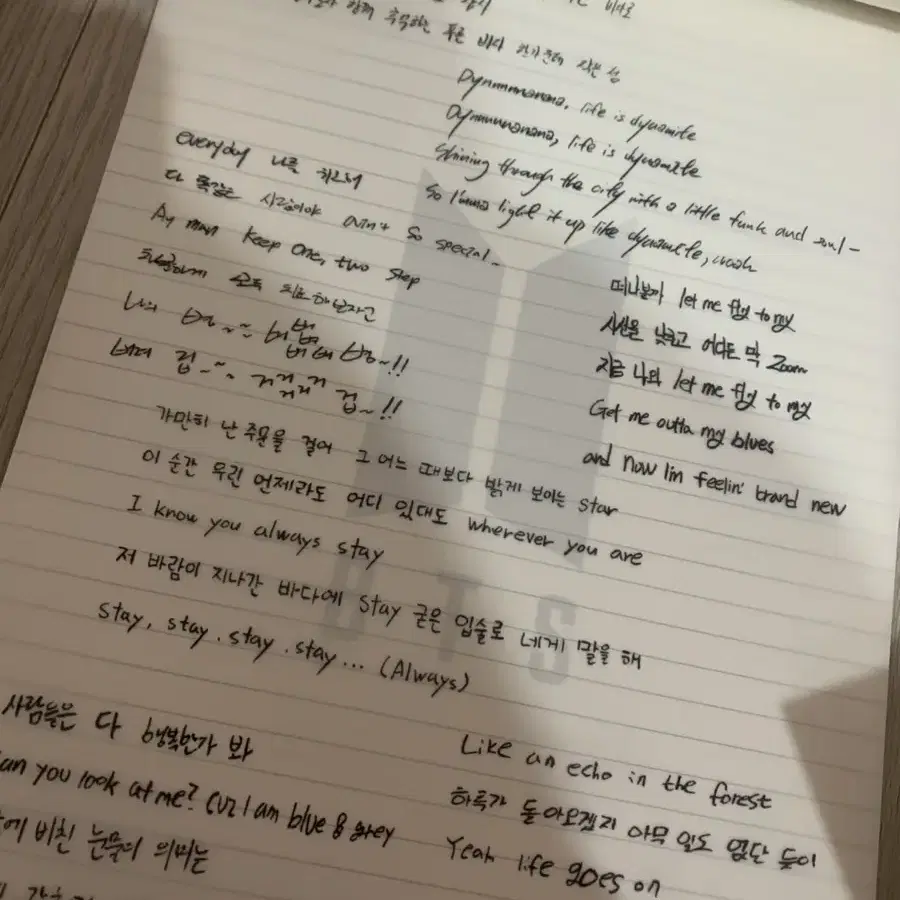 함께 춤추는 푸른 바다 한가운데 작은 섬
Dynnnnnanana, life is dynamite
Dynnnnnanana, life is dynamite
Shining through the city with a little funk and soul -
So I'mma light it up like dynamite, woah
everyday 나를
다 똑같은 사람이야 ain't so special
Ay man Keep one, two Step
차분하게 모두 치료해보자고
나의 방~~ 버법법 버버 방~!!
버텨 겁~~ 거거거거 거거거 겁~!!
떠나볼까 let me fly to my
시선을 낮추고 어디든 막 Zoom
지금 나와 let me fly to my
Get me outta my blues
and now I'm feelin' brand new
가만히 난 주문을 걸어 그 어느 때보다 밝게 보이는 star
이 순간 우린 언제라도 어디 있대도 wherever you are
I know you always stay
저 바람이 지나간 바다에 stay 굳은 입술로 네게 말을 해
stay, stay. stay. stay... (Always)
사람들은 다 행복한가 봐
an you look at me? cuz I am blue & grey
에 비친 눈물의 의미는
Like an echo in the forest
하루가 돌아오겠지 아무 일도 없단 듯이
Yeah life goes on
BTS